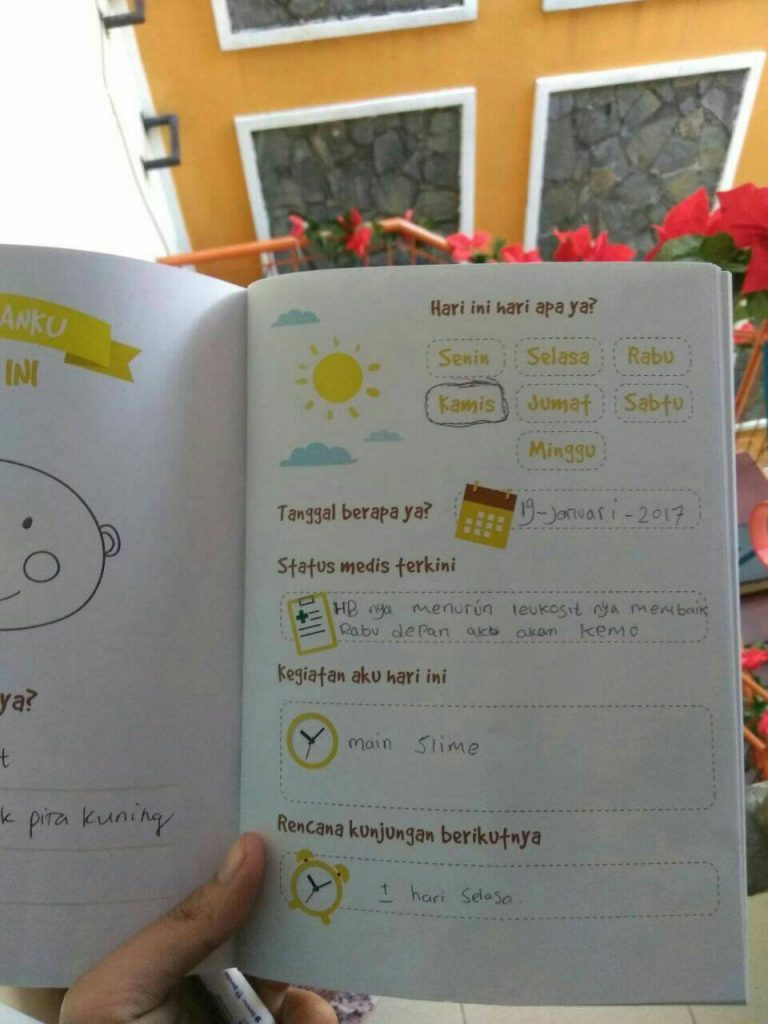 ANKU
INI
ya?
t
k pita kuning
Hari ini hari apa ya?
Senin Selasa Rabu
Kamis Jumat Sabtu
Minggu
Tanggal berapa ya? 19-Januari-2017
Status medis terkini
HB nya menurun leukosit nya membaik
Rabu depan aku akan kemo
Kegiatan aku hari ini
main Slime
Rencana kunjungan berikutnya
± hari Selasa.